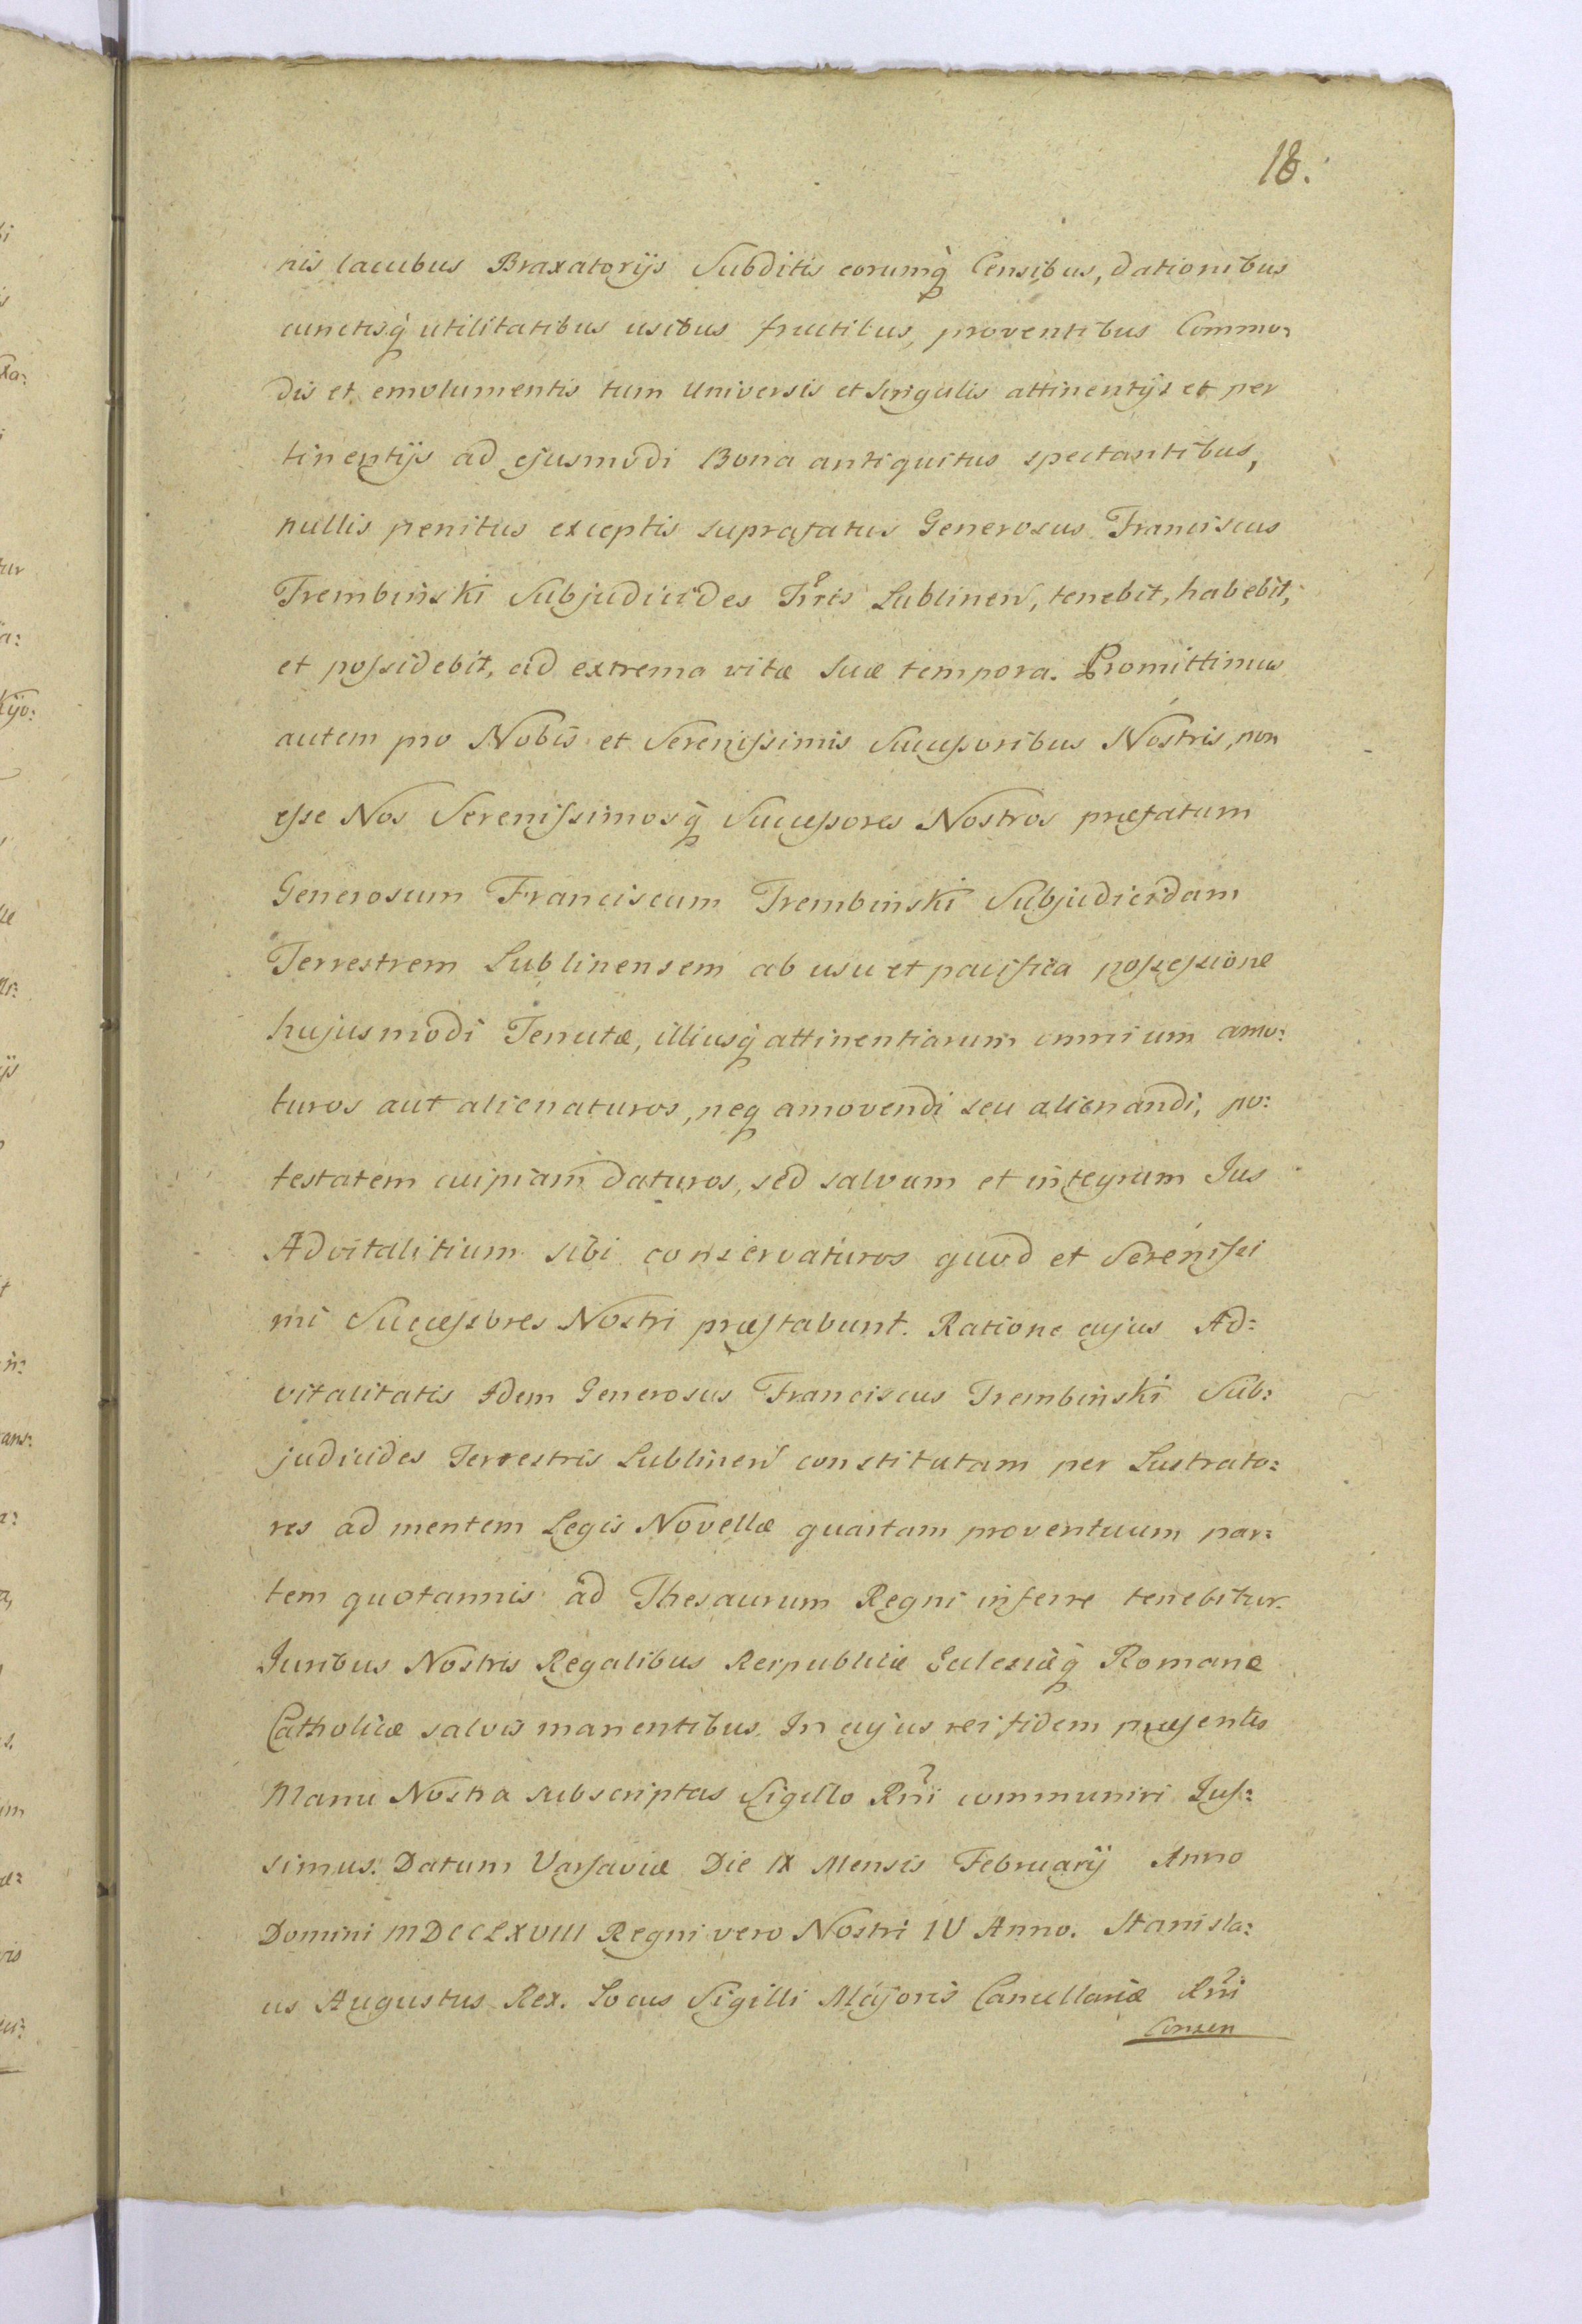 18.
nis lacubus Braxatorijs Subditis eorumq̀ Censibus, dationibus
cunctisq̀ utilitatibus usibus fructibus, proventibus Commo:
dis et emolumentis tum Universis et singulis attinentijs et per
tinentijs ad ejusmodi Bona antiquitus spectantibus,
nullis penitus exceptis suprafatus Generosus Franciscus
Trembinski Subjudicides Trr̃is Lublinen, tenebit, habebit,
et poſsidebit, ad extrema vitæ suæ tempora. Promittimus
autem pro Nobis et Sereniſsimis Succeſsoribus Nostris, non
eſse Nos Sereniſsimosq̀ Succeſsores Nostros præfatum
Generosum Franciscum Trembinski Subjudicidam
Terrestrem Lublinensem ab usu et pacifica poſseſsione
hujusmodi Tenutæ, illiusq̀ attinentiarum omnium amo:
turos aut alienaturos, neq amovendi seu alienandi, po:
testatem cuipiam daturos, sed salvum et integrum Jus
Advitalitium sibi conservaturos quod et Sereniſsi
mi Succeſsores Nostri præstabunt. Ratione cujus Ad:
vitalitatis Idem Generosus Franciscus Trembinski Sub:
judicides Terrestris Lublinen constitutam per Lustrato:
res ad mentem Legis Novellæ quartam proventuum par:
tem quotannis ad Thesaurum Regni inferre tenebitur.
Juribus Nostris Regalibus Reipublicæ Eclesiæq̀ Romanæ
Catholicæ salvis manentibus. In cujus rei fidem præsentes
Manu Nostra subscriptas Sigillo Rñi communiri Juſ:
simus. Datum Varsaviæ Die IX Mensis Februarij Anno
Domini MDCCLXVIII Regni vero Nostri IV Anno. Stanisla:
us Augustus Rex. Locus Sigilli Majoris Cancellariæ Rñi
Consen